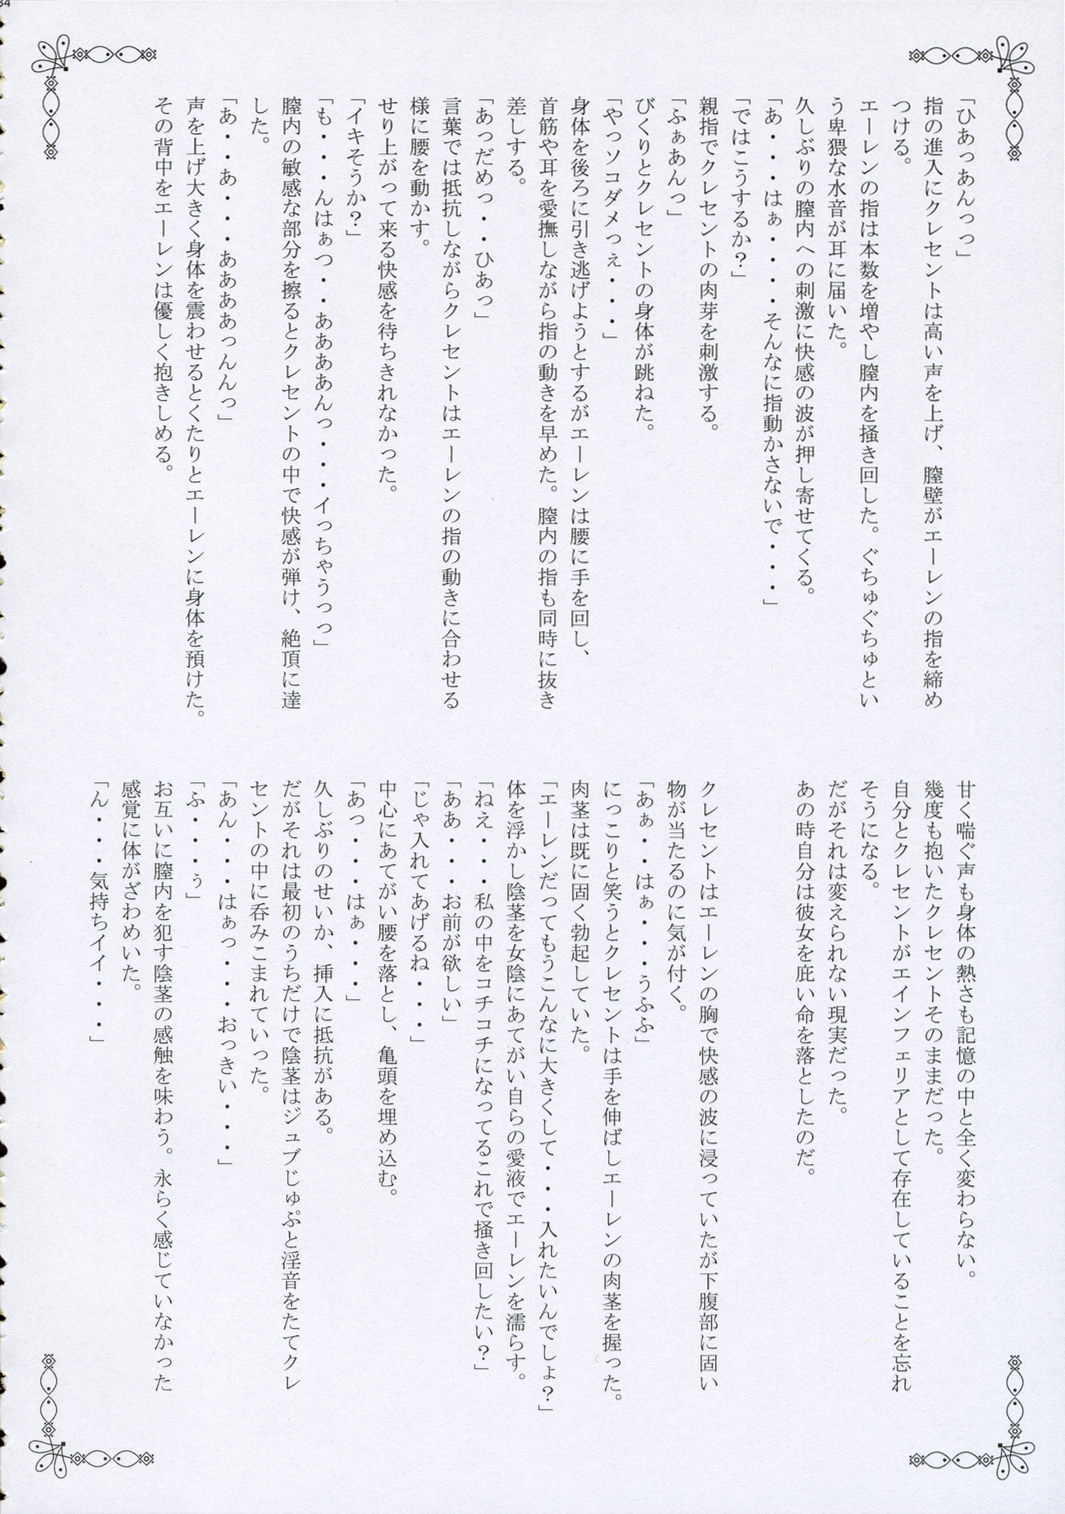 34
「ひあっあんっっ」
指の進入にクレセントは高い声を上げ、膣壁がエーレンの指を締め
つける。
エーレンの指は本数を増やし膣内を掻き回した。ぐちゅぐちゅとい
う卑猥な水音が耳に届いた。
久しぶりの膣内への刺激に快感の波が押し寄せてくる。
「あ・・・はぁ・・・そんなに指動かさないで・・・」
「ではこうするか？」
親指でクレセントの肉芽を刺激する。
「ふぁあんっ」
びくりとクレセントの身体が跳ねた。
「やっソコダメっぇ・・・」
身体を後ろに引き逃げようとするがエーレンは腰に手を回し、
首筋や耳を愛撫しながら指の動きを早めた。膣内の指も同時に抜き
差しする。
「あっだめっ・・ひあっ」
言葉では抵抗しながらクレセントはエーレンの指の動きに合わせる
様に腰を動かす。
せり上がって来る快感を待ちきれなかった。
「イキそうか？」
「も・・・んはぁっ・・ああああんっ・・・イっちゃうっっ」
膣内の敏感な部分を擦るとクレセントの中で快感が弾け、絶頂に達
した。
「あ・・あ・・・ああああっんんっ」
声を上げ大きく身体を震わせるとくたりとエーレンに身体を預けた。
その背中をエーレンは優しく抱きしめる。
甘く喘ぐ声も身体の熱さも記憶の中と全く変わらない。
幾度も抱いたクレセントそのままだった。
自分とクレセントがエインフェリアとして存在していることを忘れ
そうになる。
だがそれは変えられない現実だった。
あの時自分は彼女を庇い命を落としたのだ。
クレセントはエーレンの胸で快感の波に浸っていたが下腹部に固い
物が当たるのに気が付く。
「あぁ・・はぁ・・・うふふ」
にっこりと笑うとクレセントは手を伸ばしエーレンの肉茎を握った。
肉茎は既に固く勃起していた。
「エーレンだってもうこんなに大きくして・・・入れたいんでしょ？」
体を浮かし陰茎を女陰にあてがい自らの愛液でエーレンを濡らす。
「ねえ・・・私の中をコチコチになってるこれで掻き回したい？」
「ああ・・・お前が欲しい」
「じゃ入れてあげるね・・・」
中心にあてがい腰を落とし、亀頭を埋め込む。
「あっ・・・はぁ・・・」
久しぶりのせいか、挿入に抵抗がある。
だがそれは最初のうちだけで陰茎はジュブじゅぷと淫音をたてクレ
セントの中に呑みこまれていった。
「あん・・・はぁっ・・・おっきい・・・」
「ふ・・・ぅ」
お互いに膣内を犯す陰茎の感触を味わう。永らく感じていなかった
感覚に体がざわめいた。
「ん・・・気持ちイイ・・・」